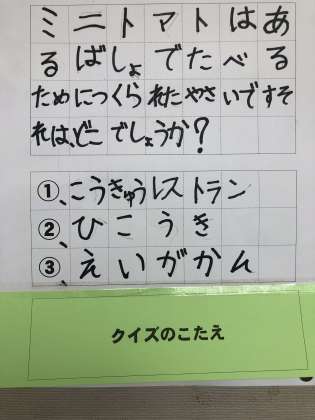 ミニトマトはあ
るばしょでたべ
ためにつくられたやさいですそ
れは、どこでしょうか?
①、こうきゅうレストラン
②、ひこうき
③、えいがかん
クイズのこたえ